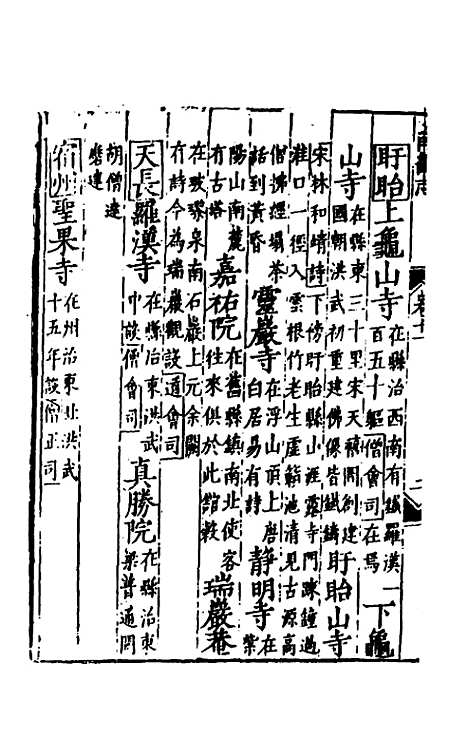 盱眙上龜山寺
在縣治西南有鐵羅漢
百五十軀僧會司在焉
下龜
山寺
在縣東三十里宋天禧間創建
國朝洪武初重建佛像皆鐵鑄
盱眙山寺
宋林和靖詩下傍盱眙縣山涯露寺門疎鐘過
淮口一徑入雲根竹老生虛籟池清見古源高
僧拂經榻茶
話到黃昏
靈巖寺
在浮山頂上唐
白居易有詩
静明寺
在
紫
陽山南麓
有古塔
嘉祐院
在舊縣鎮南北使客
往來俱於此館穀
瑞巖菴
在玻瓈泉南石巖上元余闕
有詩今為瑞巖觀設道會司
天長羅漢寺
在縣治東洪武
中設僧會司
真勝院
在縣治東
梁普通間
胡僧達
磨建
宿州聖果寺
在州治東北洪武
十五年設僧正司